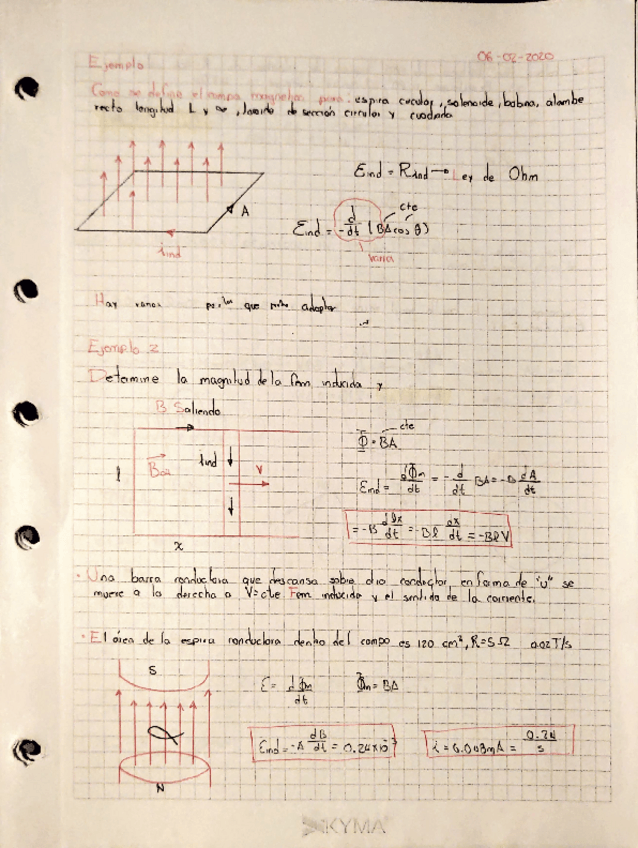 06-02-2020
Ejemplo
Como se define el campo magnetico para: espira circular, solenoide, bobina, alambe
recto longitud L y ∞, toroide de sección circular y cuadrada
Eind = Rind → Ley de Ohm
A
iind
Eind = - d/dt (BA cos θ)
cte
varia
Hay varias que adoptar
Ejemplo 2
Determine la magnitud de la fem inducida y
B Saliendo
iind
V
l
x
Φ = BA
cte
Eind = - dΦm/dt = - d/dt BA = -B dA/dt
= -B dlx/dt = -Bl dx/dt = -BlV
· Una barra conductora que descansa sobre otro conductor en forma de "u" se
mueve a la derecha a V=cte Fem inducida y el sentido de la corriente.
· El área de la espira conductora dentro del campo es 120 cm², R=5Ω 0.02T/s
S
N
E = dΦm/dt
Φm = BA
Eind = -A dB/dt = 0.24x10⁻³
i = 0.048mA = 0.24/5